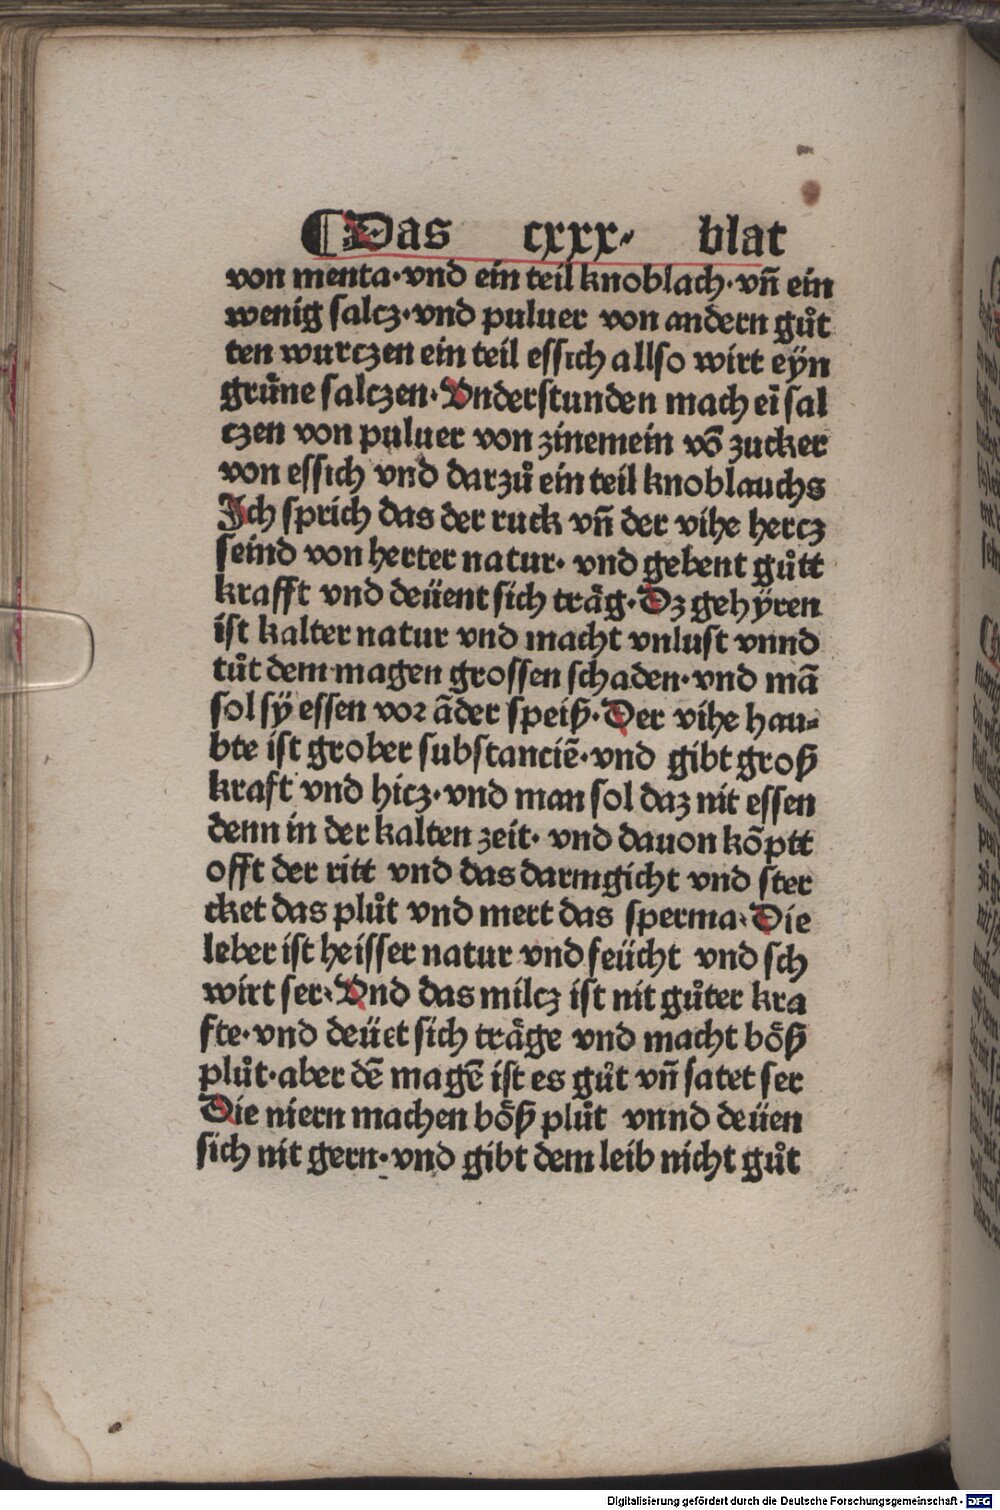 ¶ Das cxxx· blat
von menta·vnd ein teil knoblach·vñ ein
wenig salcz·vnd puluer von andern gůt
ten wurczen ein teil essich allso wirt eyn
grüne salczen·Vnderstunden mach eĩ sal
czen von puluer von zinemein võ zucker
von essich vnd darzů ein teil knoblauchs
Ich sprich das der ruck vñ der vihe hercz
seind von herter natur· vnd gebent gůtt
krafft vnd deüent sich träg·Dz gehÿren
ist kalter natur vnd macht vnlust vnnd
tůt dem magen grossen schaden·vnd mã
sol sÿ essen vor ãder speiß·Der vihe hau⸗
bte ist grober substanciẽ·vnd gibt groß
kraft vnd hicz·vnd man sol daz nit essen
denn in der kalten zeit· vnd dauon kõptt
offt der ritt vnd das darmgicht vnd ster
cket das plůt vnd mert das sperma·Die
leber ist heisser natur vnd feücht vnd sch
wirt ser·Vnd das milcz ist nit gůter kra
fte·vnd deüet sich träge vnd macht böß
plůt·aber dẽ magẽ ist es gůt vñ satet ser
Die niern machen böß plůt vnnd deüen
sich nit gern·vnd gibt dem leib nicht gůt
Digitalisierung gefördert durch die Deutsche Forschungsgemeinschaft - DFG